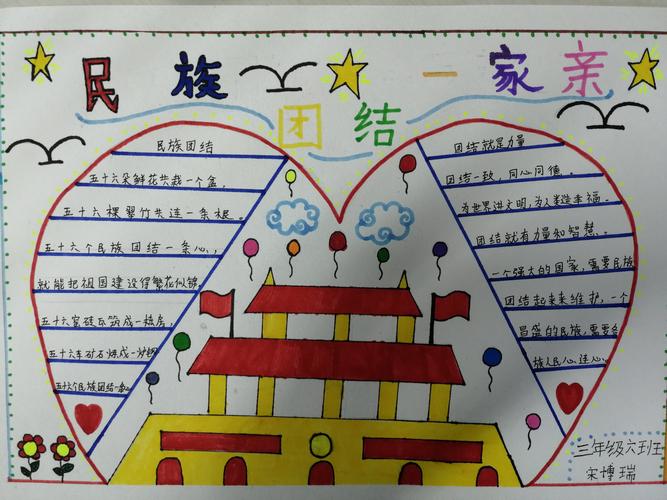 民族团结一家亲
民族团结
五十六朵鲜花共栽一个盆,
五十六棵翠竹共连一条根。
五十六个民族团结一条心,
就能把祖国建设得繁花似锦。
五十六窑砖瓦筑成一栋房,
五十六车矿石炼成一炉钢
五十六个民族团结一条
团结就是力量
团结一致,同心同德。
为世界进文明,为人类造幸福。
团结就有力量和智慧。
一个强大的国家,需要民族
团结起来来维护,一个
昌盛的民族,需要
族人民心连心。
三年级六班
宋博瑞